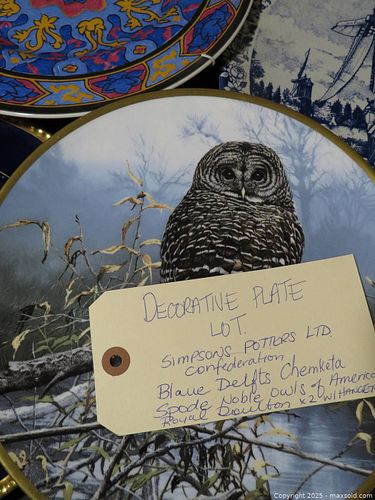 DECORATIVE PLATE
LOT.
SIMPSONS POTTERS LTD.
confederation
Blaue Delfts Chemketa
Spode Noble owls of America
Royal Doulton x2 w/ HANGER
Copyright 2025 - maxsold.com